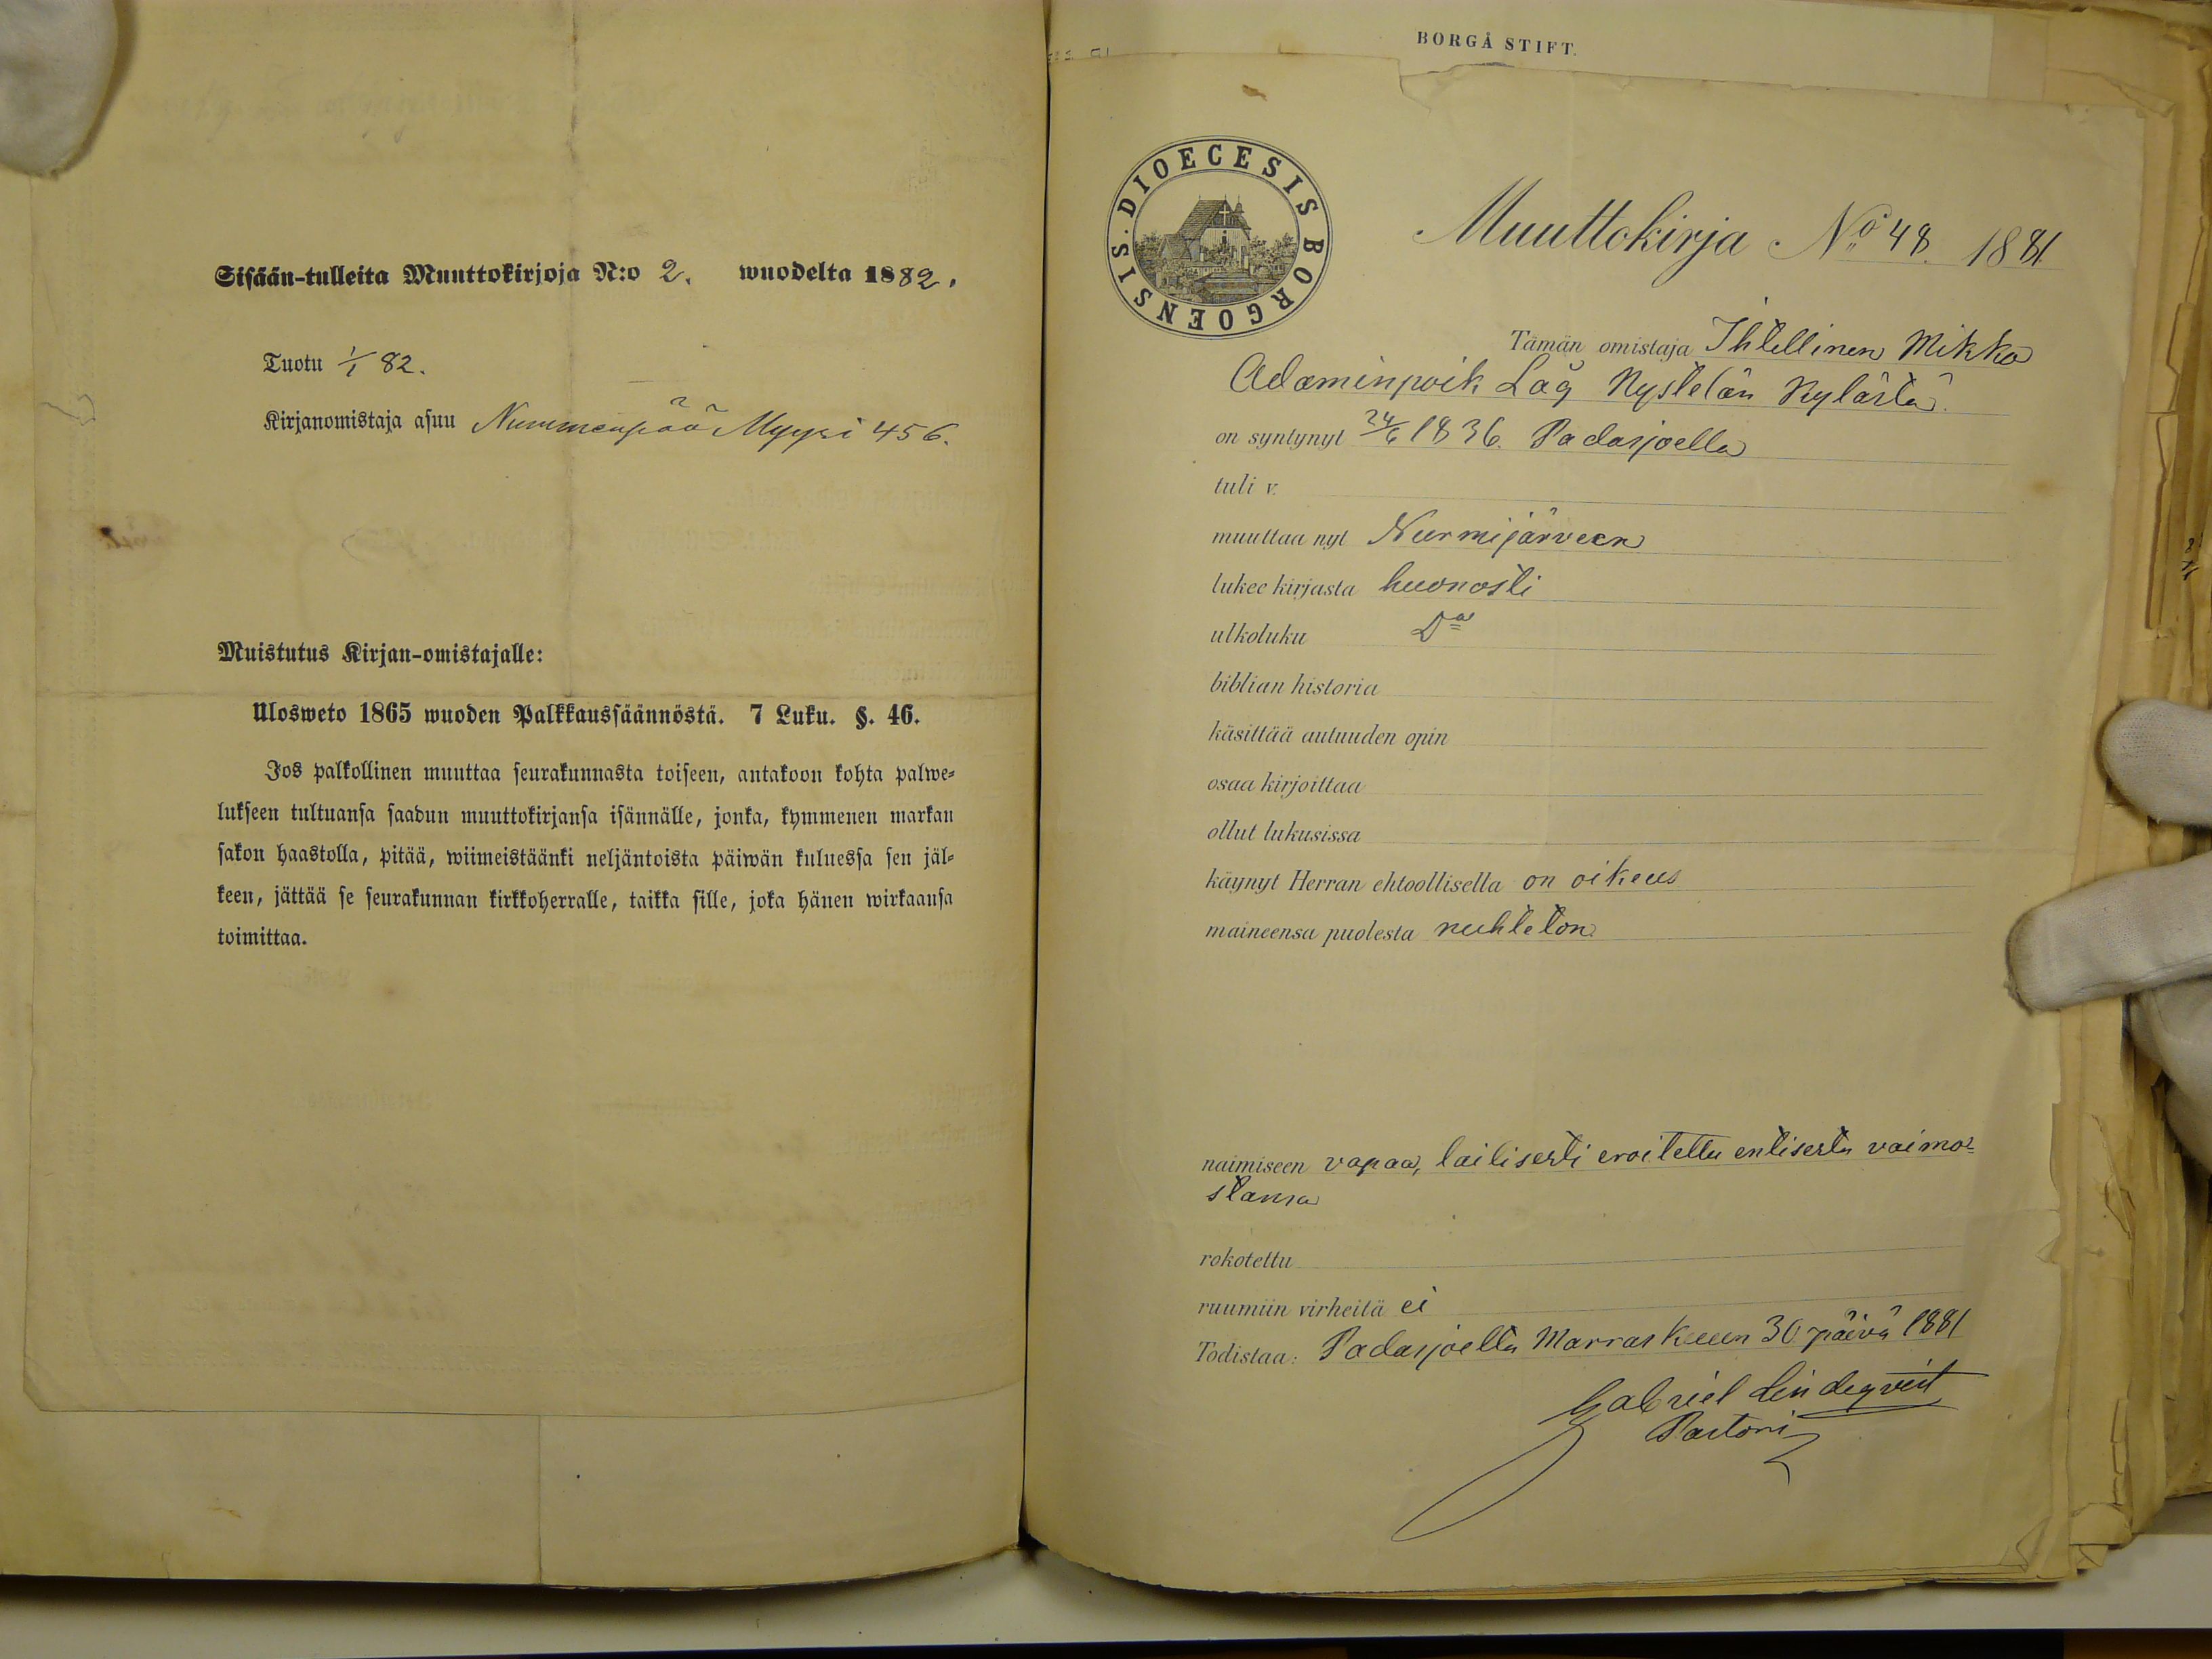 Sisään-tulleita Muuttokirjoja N:o 2. wuodelta 1882.
Tuotu 1/1 82.
Kirjanomistaja asuu Nummenpää Myyri 456.
Muistutus Kirjan-omistajalle:
Ulosweto 1865 wuoden Palkkaussäännöstä. 7 Luku. §. 46.
Jos palkollinen muuttaa seurakunnasta toiseen, antakoon kohta palwe-
lukseen tultuansa saadun muuttokirjansa isännälle, jonka, kymmenen markan
sakon haastolla, pitää, wiimeistäänki neljäntoista päiwän kuluessa sen jäl-
keen, jättää se seurakunnan kirkkoherralle, taikka sille, joka hänen wirkaansa
toimittaa.
BORGÅ STIFT.
DIOECESIS BORGOENSIS.
Muuttokirja No 48. 1881
Tämän omistaja Ihtellinen Mikko
Adaminpoik Låg Nystelän Kylästä.
on syntynyt 24/6 1836. Padasjoella
tuli v.
muuttaa nyt Nurmijärveen
lukee kirjasta huonosti
ulkoluku Do
biblian historia
käsittää autuuden opin
osaa kirjoittaa
ollut lukusissa
käynyt Herran ehtoollisella on oikeus
maineensa puolesta nuhteton
naimiseen vapaa, lailisesti eroitettu entisestä vaimo-
stansa
rokotettu
ruumiin virheitä ei
Todistaa: Padasjoella Marraskuun 30 päivä 1881
Gabriel Lindeqvist
Pastori